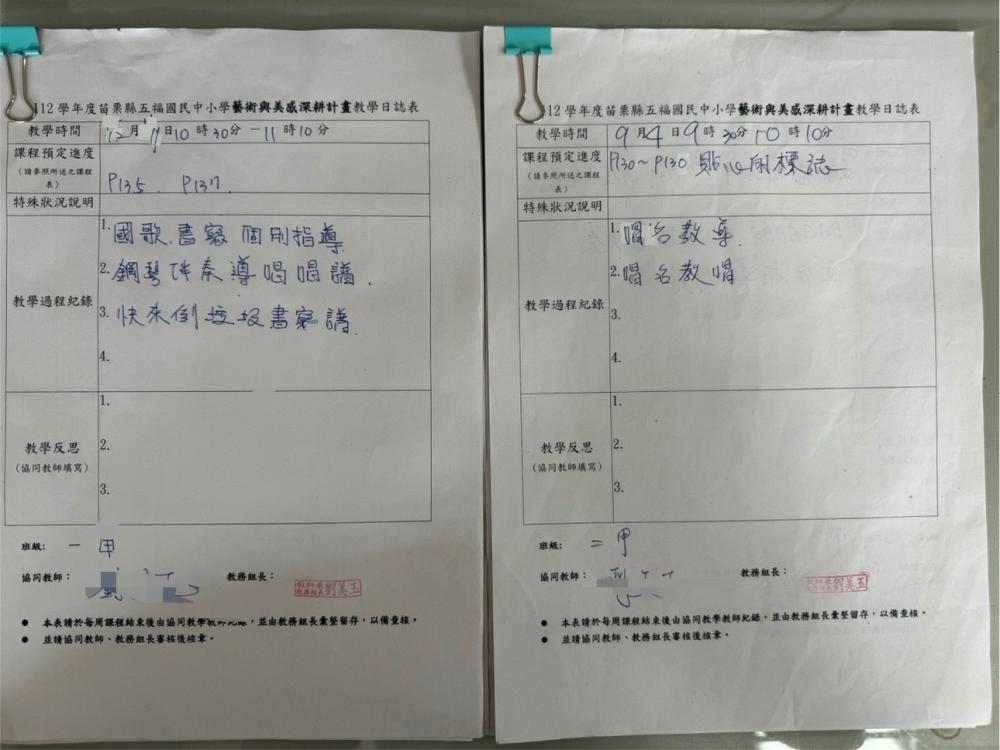 112學年度苗栗縣五福國民中小學藝術與美感深耕計畫教學日誌表
教學時間 12月11日10時30分-11時10分
課程預定進度
(請參照所送之課程表)
P135、P137.
特殊狀況說明
教學過程紀錄
1.國歌.書寫個別指導.
2.鋼琴伴奏導唱唱譜.
3.快來倒垃圾書寫譜.
4.
教學反思
(協同教師填寫)
1.
2.
3.
班級: 一甲
協同教師:
教務組長:
劉美玉
● 本表請於每周課程結束後由協同教學教師紀錄,並由教務組長彙整留存,以備查核。
● 並請協同教師、教務組長審核後核章。
12學年度苗栗縣五福國民中小學藝術與美感深耕計畫教學日誌表
教學時間 9月4日9時30分10時10分
課程預定進度
(請參照所送之課程表)
P130~P130 貼心的標誌
特殊狀況說明
教學過程紀錄
1.唱名教導.
2.唱名教唱
3.
4.
教學反思
(協同教師填寫)
1.
2.
3.
班級: 二甲
協同教師:
教務組長:
劉美玉
● 本表請於每周課程結束後由協同教學教師紀錄,並由教務組長彙整留存,以備查核。
● 並請協同教師、教務組長審核後核章。